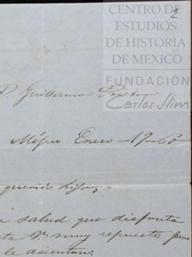 2
CENTRO DE
ESTUDIOS
DE HISTORIA
DE MEXICO
FUNDACIÓN
Carlos Slim
D. Guillermo
Méjico Enero - 19 - 65
querido hijo,
salud que disfruta
muy repuesto pues
le asientan